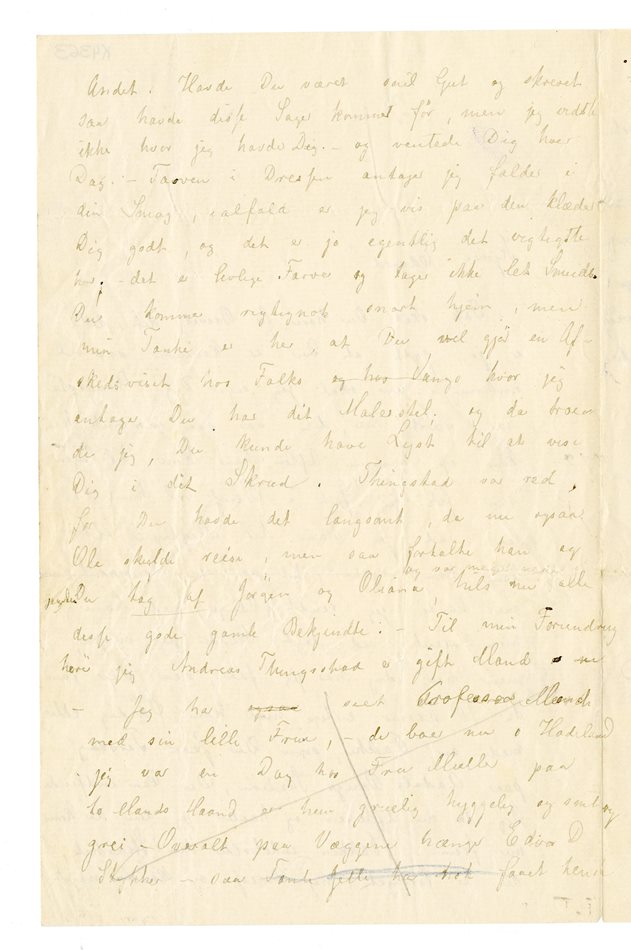 Andet. Havde Du været snil Gut og skrevet
saa havde disse Sager kommet før, men jeg vidste
ikke hvor jeg havde Dig. – og ventede Dig hver
Dag. – Farven i Dressen antager jeg falder i
din Smag, ialfald er jeg vis paa den klæder
Dig godt, og det er jo egentlig det vigtigste
her, – det er livlige Farver og tager ikke let Smuds.
Du kommer rigtignok snart hjem, men
min Tanke er her, at Du vel gjør en Af-
skedsvisit hos Falks og hos Vangs hvor jeg
antager Du har dit Malerstel, og da troe
de jeg, Du kunde have Lyst til at vise
Dig i dit Skrud. Thingstad var ræd,
for Du havde det langsomt, da nu ogsaa
Ole skulde reise, men saa fortalte han og
og var meget
Du tog af Jørgen og Oliana, hils nu alle
disse gode gamle Bekjendte. – Til min Forundring
hører jeg Andreas Thingstad er gift Mand
– Jeg har ogsaa seet Professor Munch
med sin lille Frue, – de boer nu o Hadeland
jeg var en Dag hos Fru Mülle paa
to Mands Haand er hun gruelig hyggelig og snil og
grei – Overalt paa Væggene hænger Edvard D
– saa Tante faaet hende